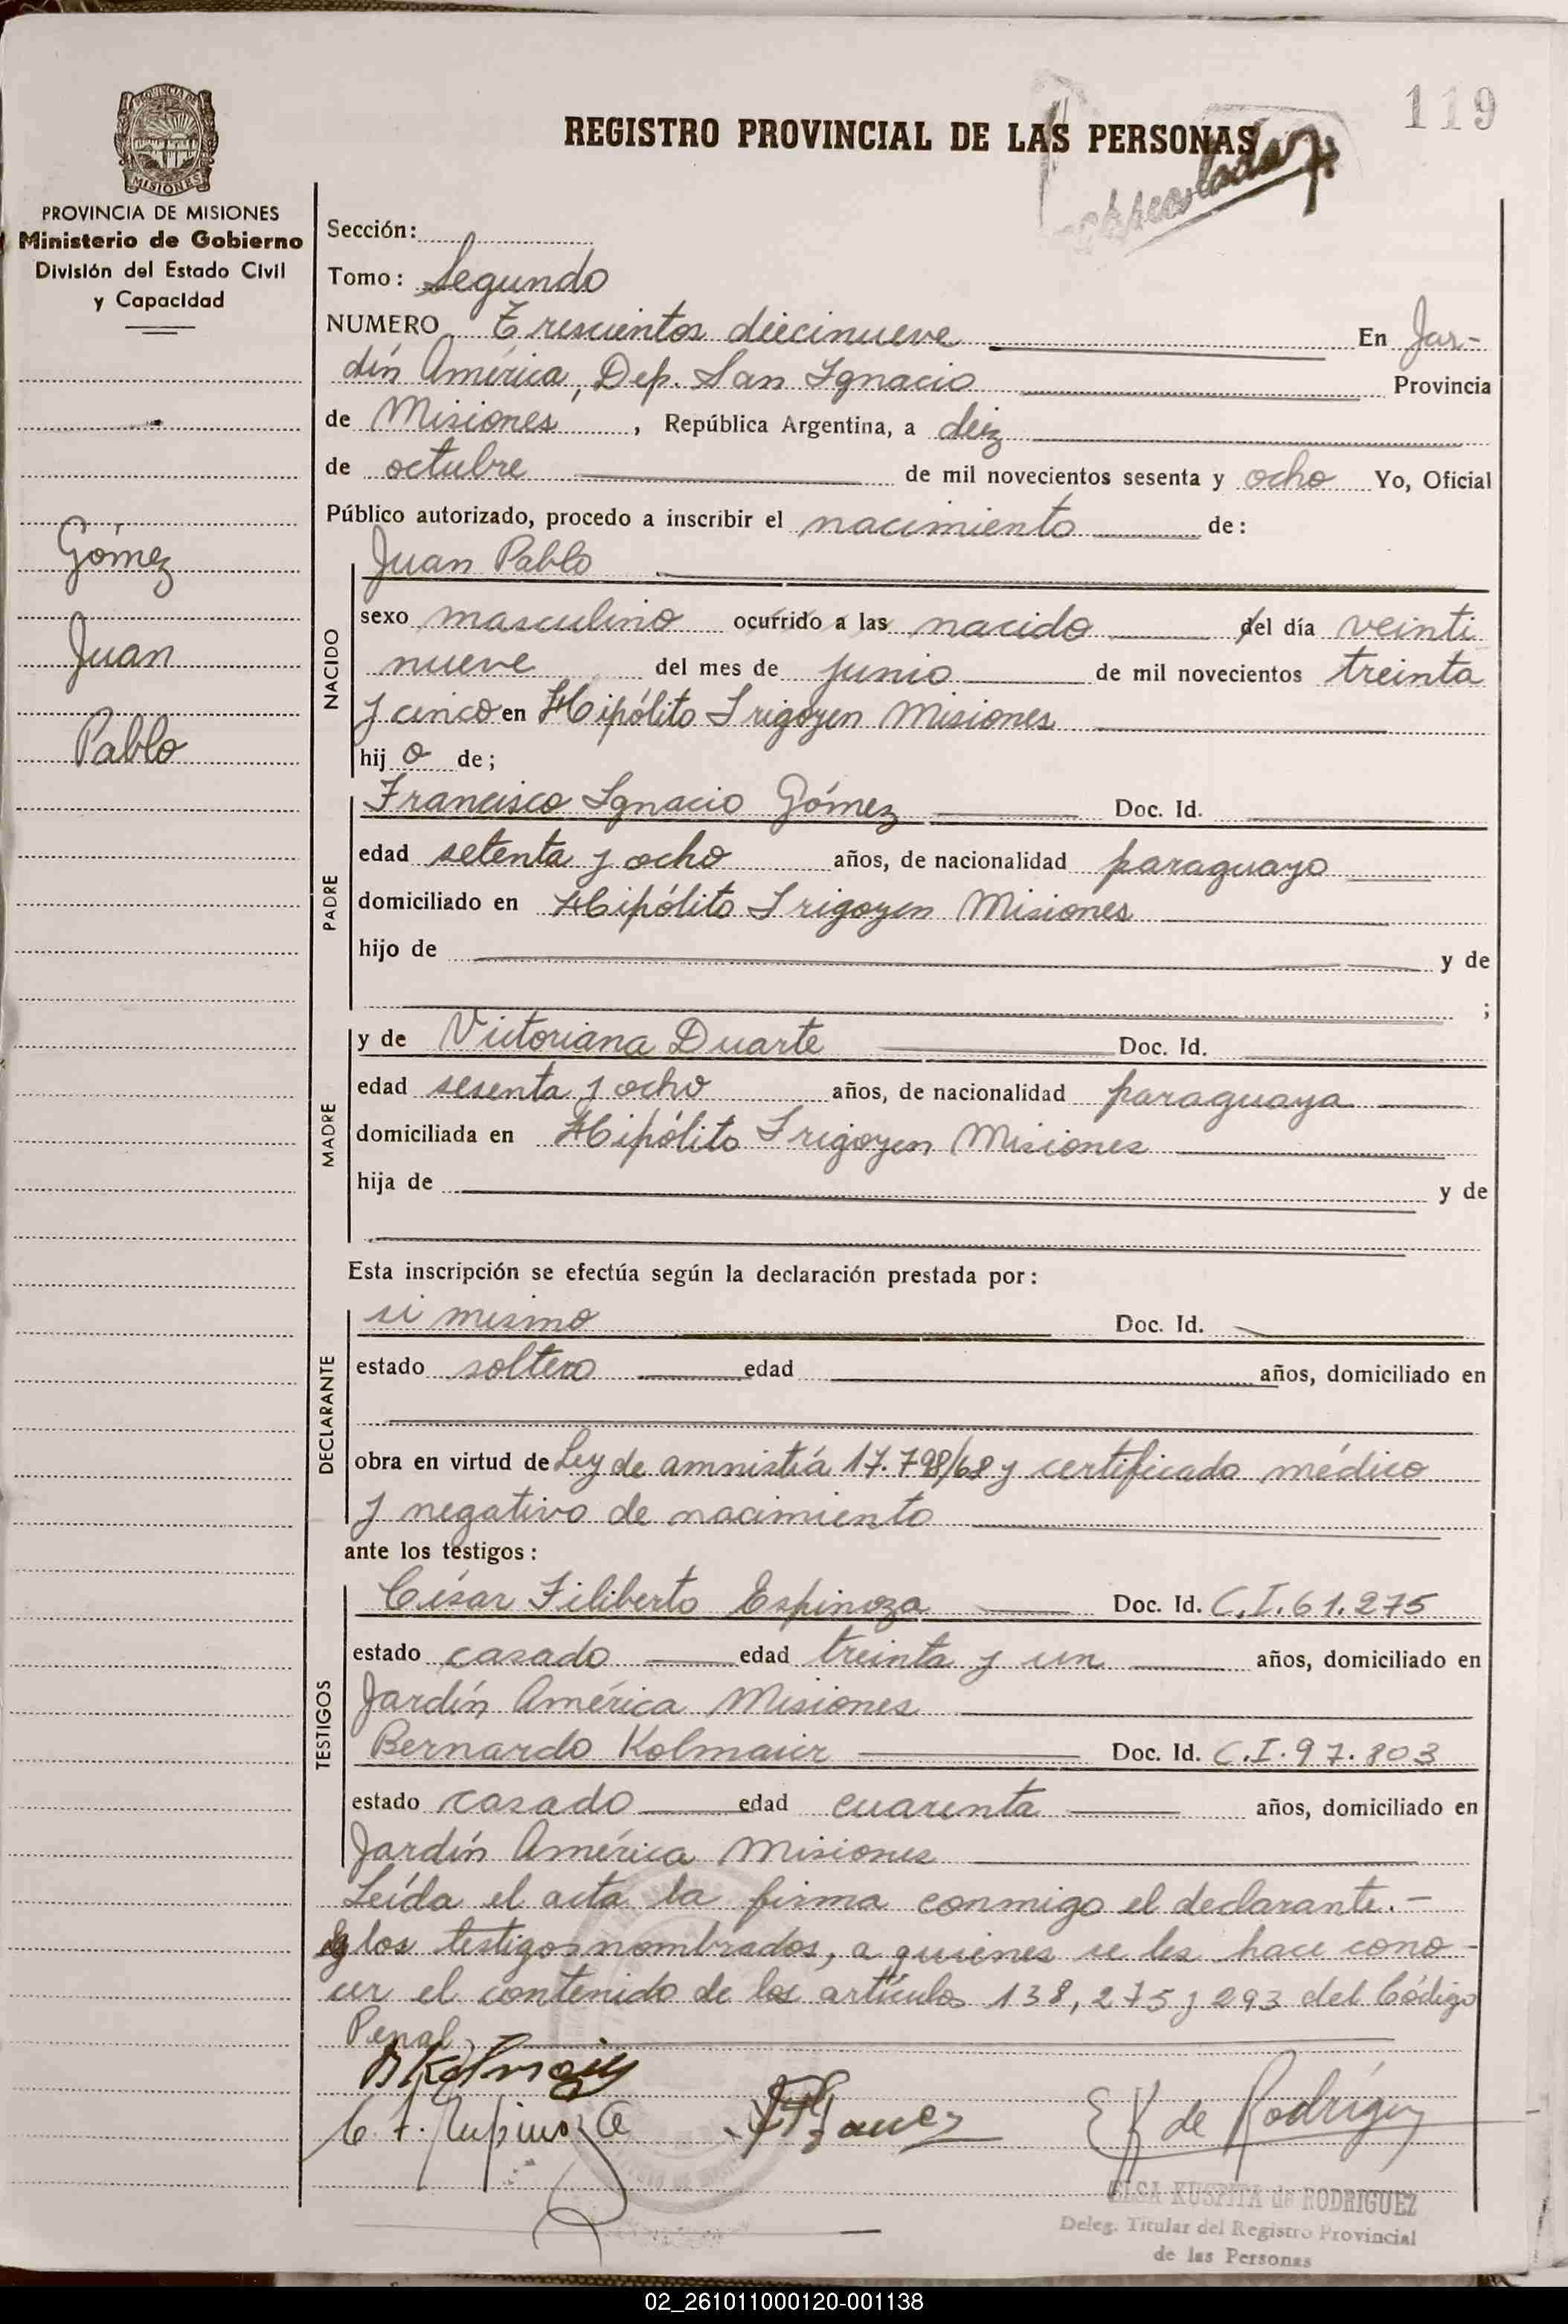 119
REGISTRO PROVINCIAL DE LAS PERSONAS
PROVINCIA DE MISIONES
Ministerio de Gobierno
División del Estado Civil
y Capacidad
Sección:
Tomo: Segundo
NUMERO Trescientos diecinueve En Jar-
dín América, Dep. San Ignacio Provincia
de Misiones, República Argentina, a diez
de octubre de mil novecientos sesenta y ocho Yo, Oficial
Público autorizado, procedo a inscribir el nacimiento de:
Gómez
Juan
Pablo
NACIDO
Juan Pablo
sexo masculino ocurrido a las nacido del día veinti
nueve del mes de junio de mil novecientos treinta
y cinco en Hipólito Irigoyen Misiones
hijo de;
PADRE
Francisco Ignacio Gómez Doc. Id.
edad setenta y ocho años, de nacionalidad paraguayo
domiciliado en Hipólito Irigoyen Misiones
hijo de y de
;
MADRE
y de Victoriana Duarte Doc. Id.
edad sesenta y ocho años, de nacionalidad paraguaya
domiciliada en Hipólito Irigoyen Misiones
hija de y de
Esta inscripción se efectúa según la declaración prestada por:
DECLARANTE
si mismo Doc. Id.
estado soltero edad años, domiciliado en
obra en virtud de Ley de amnistía 17.798/68 y certificado médico
y negativo de nacimiento
ante los testigos:
TESTIGOS
César Filiberto Espinoza Doc. Id. C.I. 61.275
estado casado edad treinta y un años, domiciliado en
Jardín América Misiones
Bernardo Kolmaier Doc. Id. C.I. 97.803
estado casado edad cuarenta años, domiciliado en
Jardín América Misiones
Leída el acta la firma conmigo el declarante.-
y los testigos nombrados, a quienes se les hace cono-
cer el contenido de los artículos 138, 275 y 293 del Código
Penal
EK de Rodríguez
ELSA KUSPITA de RODRIGUEZ
Deleg. Titular del Registro Provincial
de las Personas
02_261011000120-001138